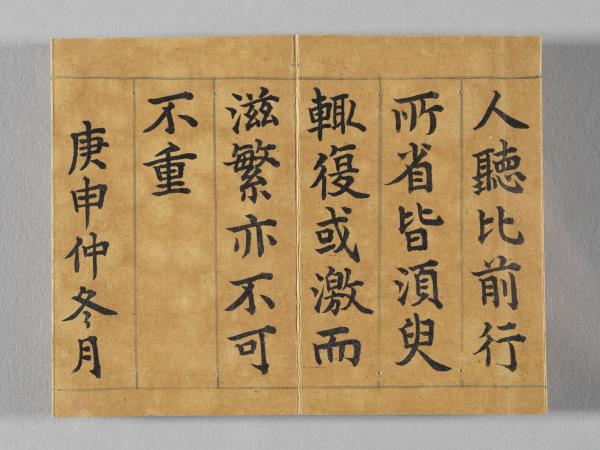 人聽比前行
所省皆須臾
輙復或激而
滋繁亦不可
不重
庚申仲冬月